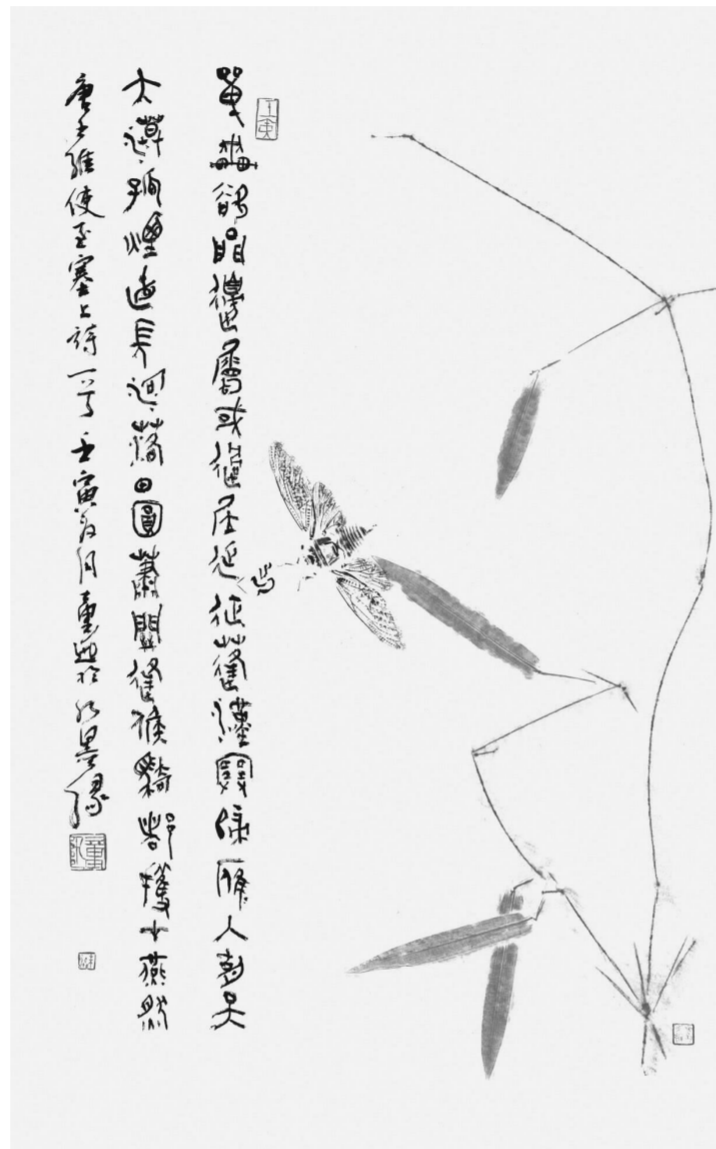 壬寅
單車欲問邊屬國過居延征蓬漢塞歸雁入胡天
出
大漠孤煙直長河落日圓蕭關逢候騎都護在燕然
唐王維使至塞上詩一首壬寅月童於墨緣